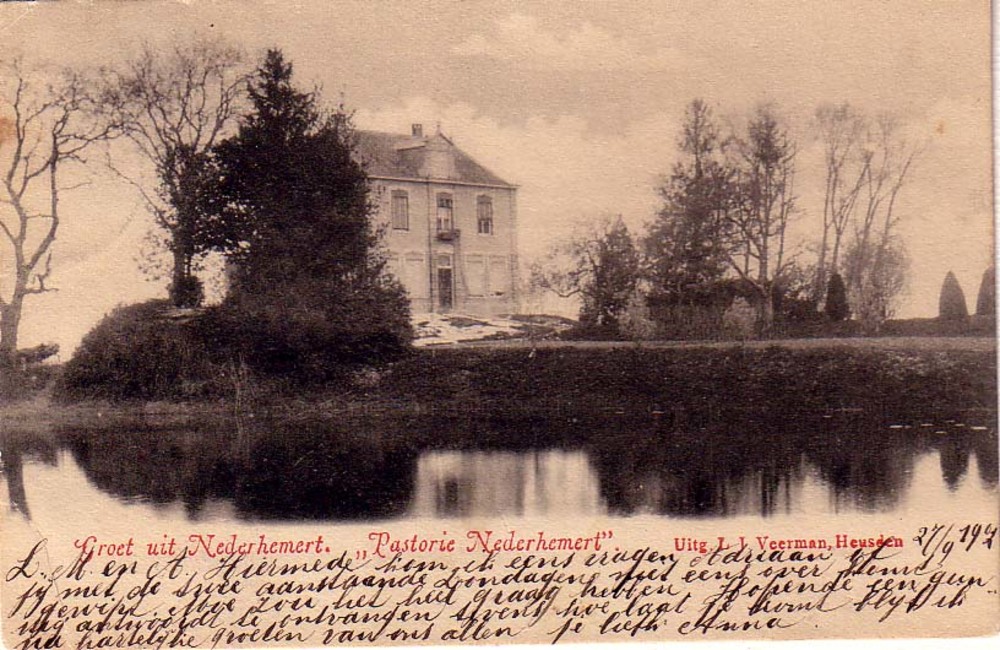 Groet uit Nederhemert. „Pastorie Nederhemert". Uitg. L. J. Veerman, Heusden 27/9 190
L. M. en A. Hiermede kom ik eens vragen Adriaan of
jij met de aanstaande Zondagen niet eens over
Moe zou het heel graag hebben Hopende een gun
antwoordt te ontvangen tevens hoe laat je komt blijf ik
na hartelijke groeten van ons allen je liefh Anna